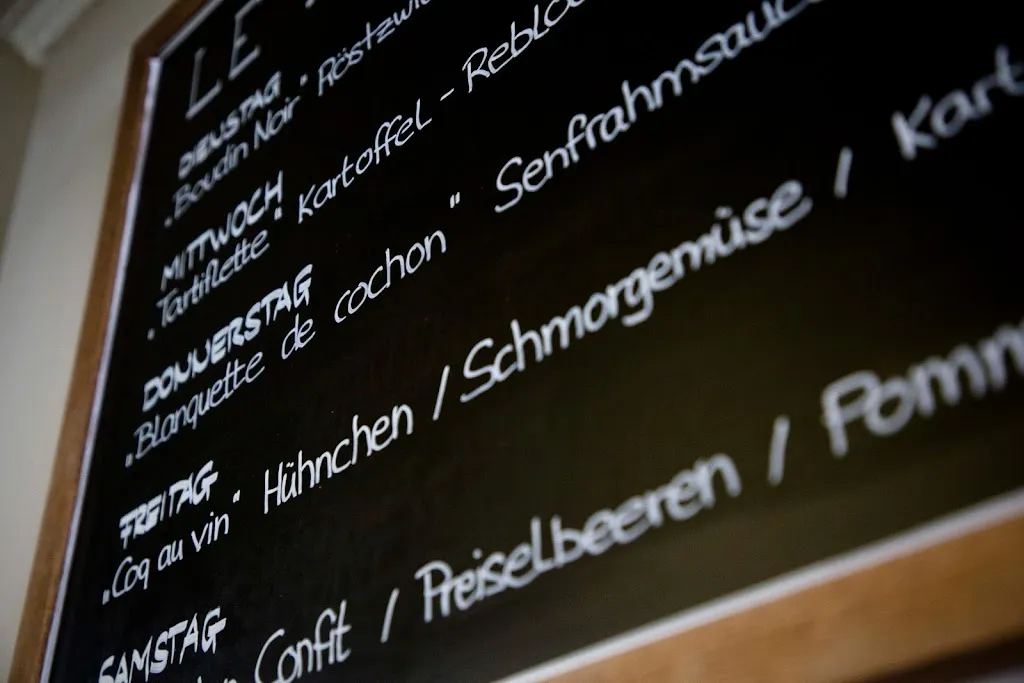 LE
DIENSTAG
„Boudin Noir" Röstzwie
MITTWOCH
„Tartiflette" Kartoffel - Reblo
DONNERSTAG
„Blanquette de cochon" Senfrahmsauc
FREITAG
„Coq au vin" Hühnchen / Schmorgemüse / Kart
SAMSTAG
Confit / Preiselbeeren / Pomm